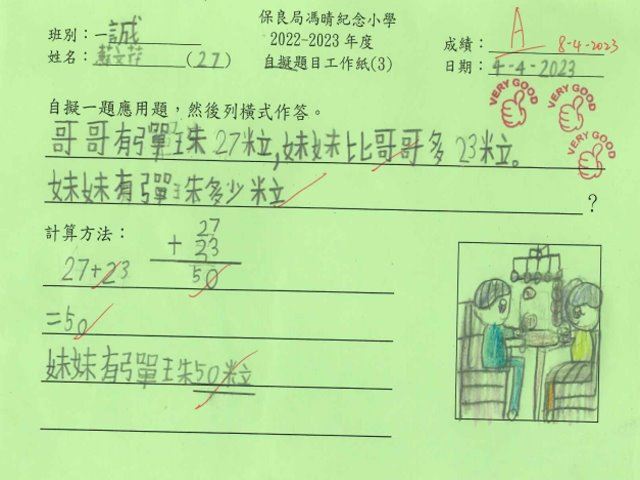 保良局馮晴紀念小學
班別：一誠
2022-2023 年度
成績：A 8-4-2023
姓名：蘇文莊 (27)
自擬題目工作紙(3)
日期：4-4-2023
自擬一題應用題，然後列橫式作答。
VERY GOOD
VERY GOOD
VERY GOOD
哥哥有彈珠27粒,妹妹比哥哥多23粒。
妹妹有彈珠多少粒？
計算方法：
27
+ 23
50
27+23
=50
妹妹有彈珠50粒